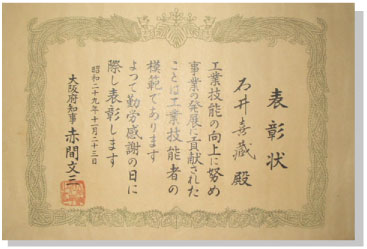 表彰状
石井喜蔵殿
工業技能の向上に努め
事業の発展に貢献された
ことは工業技能者の
模範であります
よって勤労感謝の日に
際し表彰します
昭和二十九年十一月二十三日
大阪府知事赤間文三